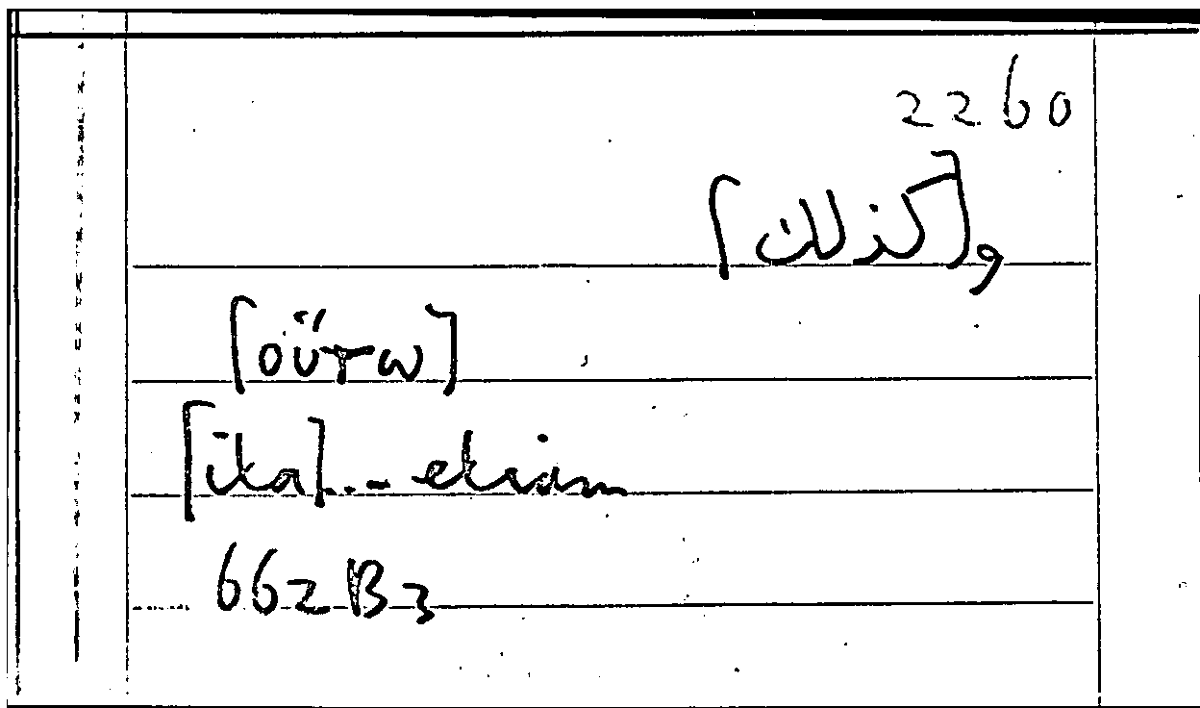 2260
و[كذلك]
[οὕτω]
[ita]... etiam
662B3